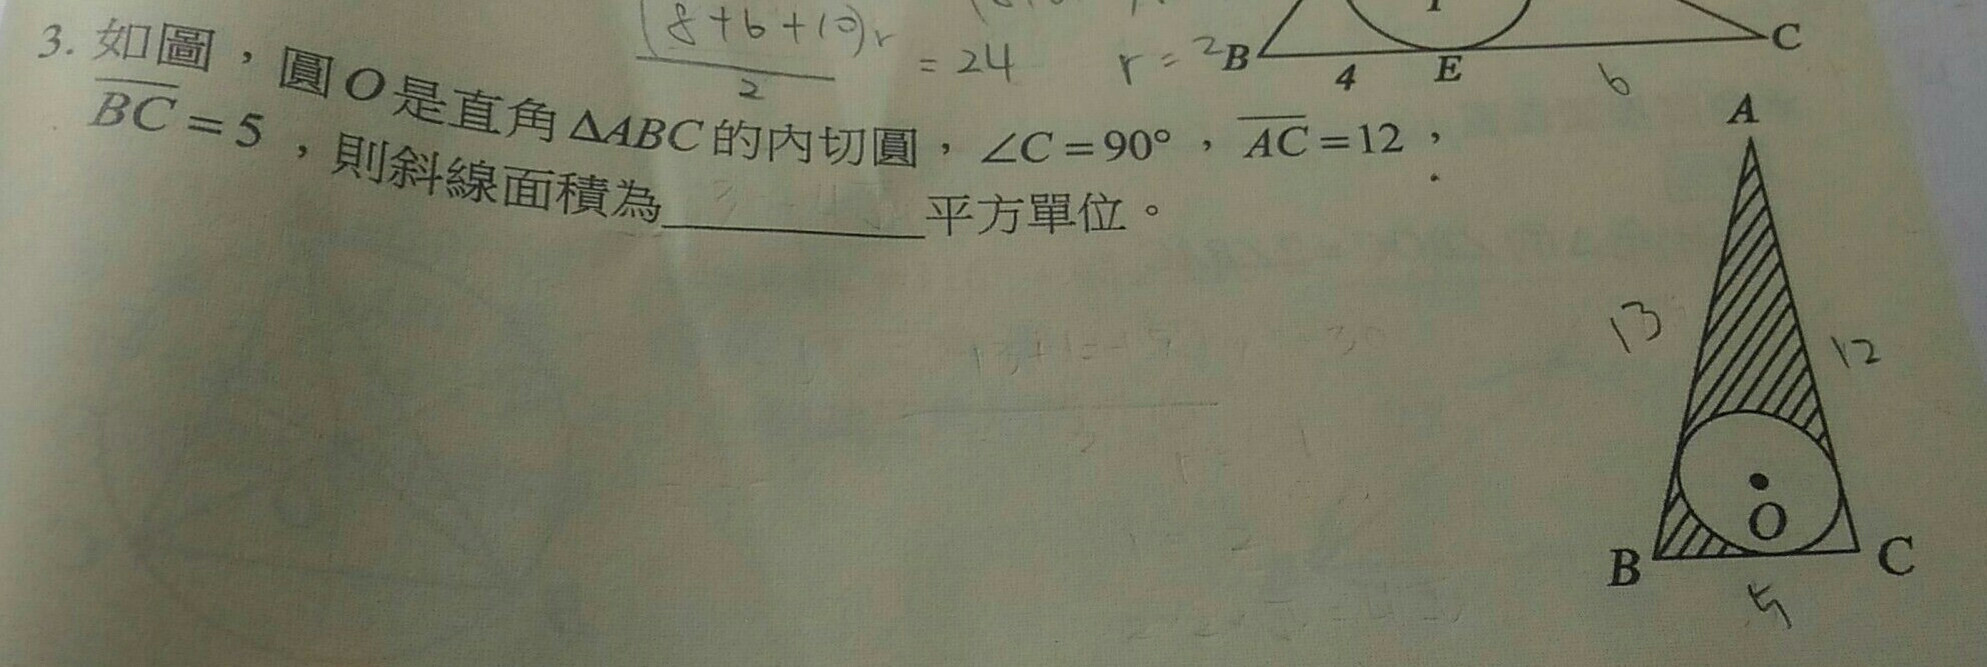 (8+6+10)r
2
= 24
r = 2
B
4
E
6
C
3. 如圖，圓O是直角ΔABC的內切圓，∠C=90°，AC=12，
BC=5，則斜線面積為 平方單位。
A
13
12
O
B
C
5